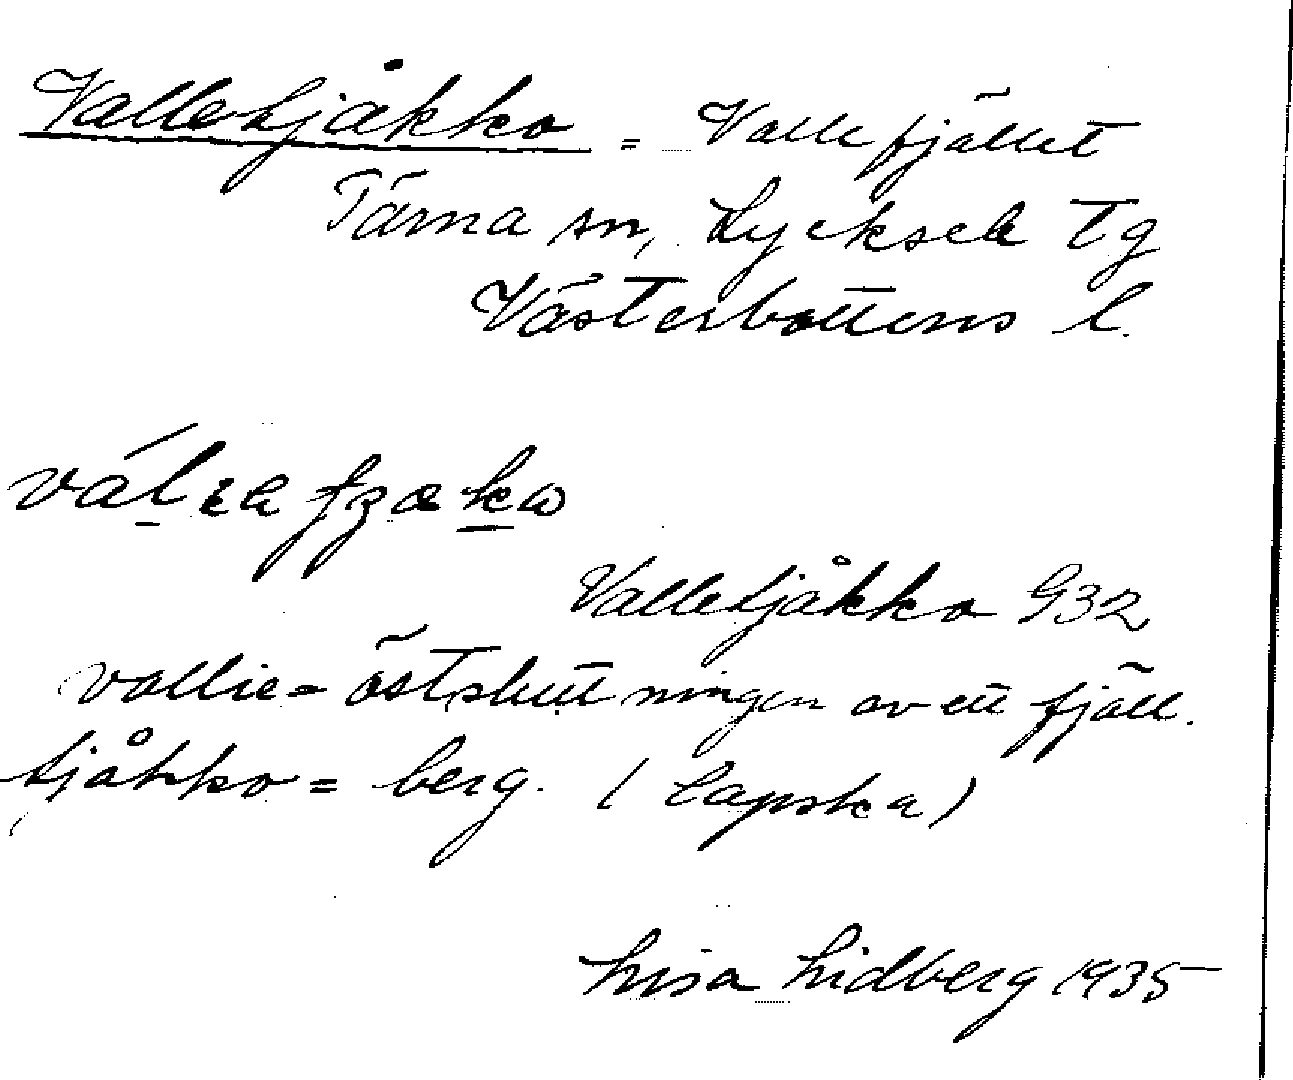 Valletjåkko = Vallefjället
Tärna sn, Lycksele tg
Västerbottens l.
Valletjåkko G32
vallie = östsluttningen av ett fjäll.
tjåkko = berg. (Lapska)
Lisa Lidberg 1935